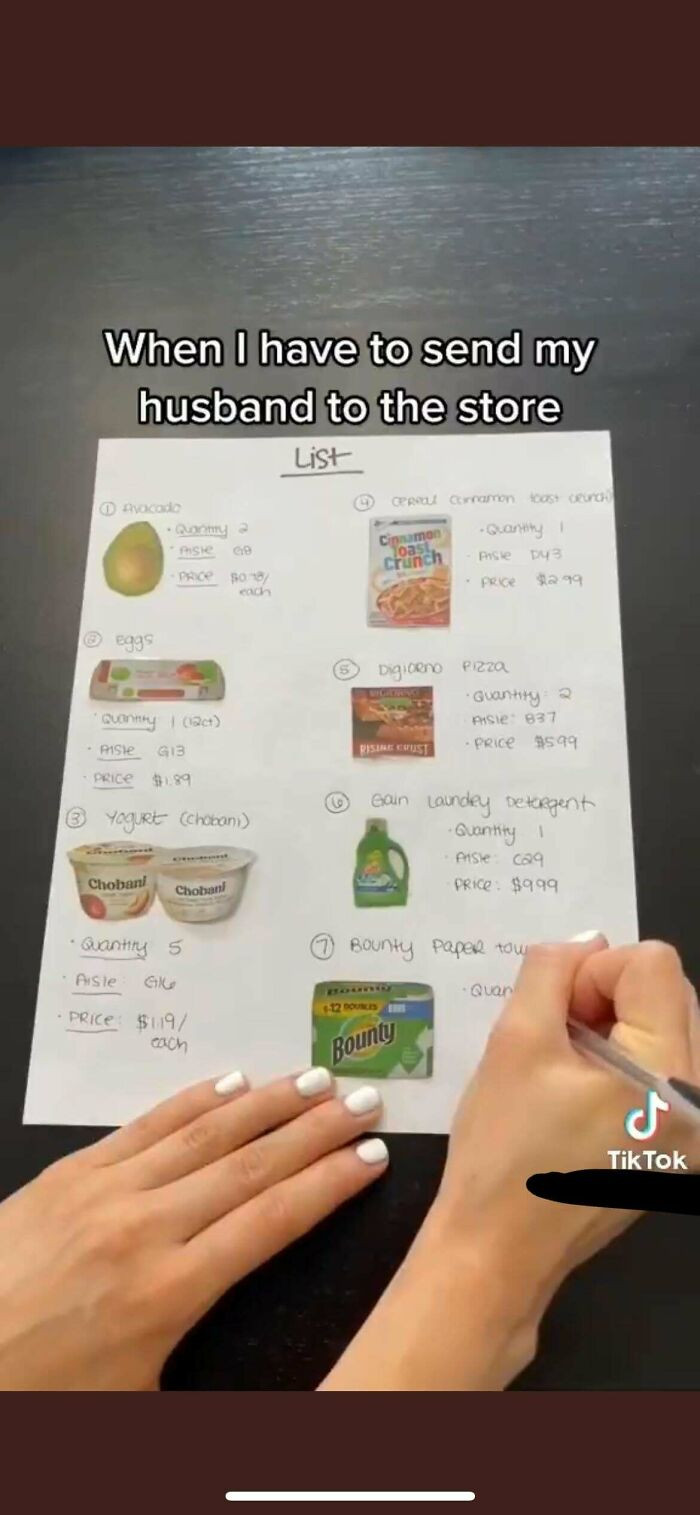 When I have to send my
husband to the store
List
① Avocado
• Quantity 2
• Aisle G8
• Price $0.78/
each
② eggs
• Quantity 1 (12ct)
• Aisle G13
• Price $1.89
③ Yogurt (chobani)
Chobani
Chobani
• Quantity 5
• Aisle: G16
• Price: $1.19/
each
④ cereal cinnamon toast crunch
Cinnamon
Toast
Crunch
• Quantity 1
• Aisle D43
• Price $2.99
⑤ Digiorno Pizza
DIGIORNO
RISING CRUST
• Quantity: 2
• Aisle: B37
• Price $5.99
⑥ Gain Laundry Detergent
Gain
• Quantity 1
• Aisle: C29
• Price: $9.99
⑦ Bounty Paper tow
Bounty
12 DOUBLES
Bounty
• Quan
TikTok